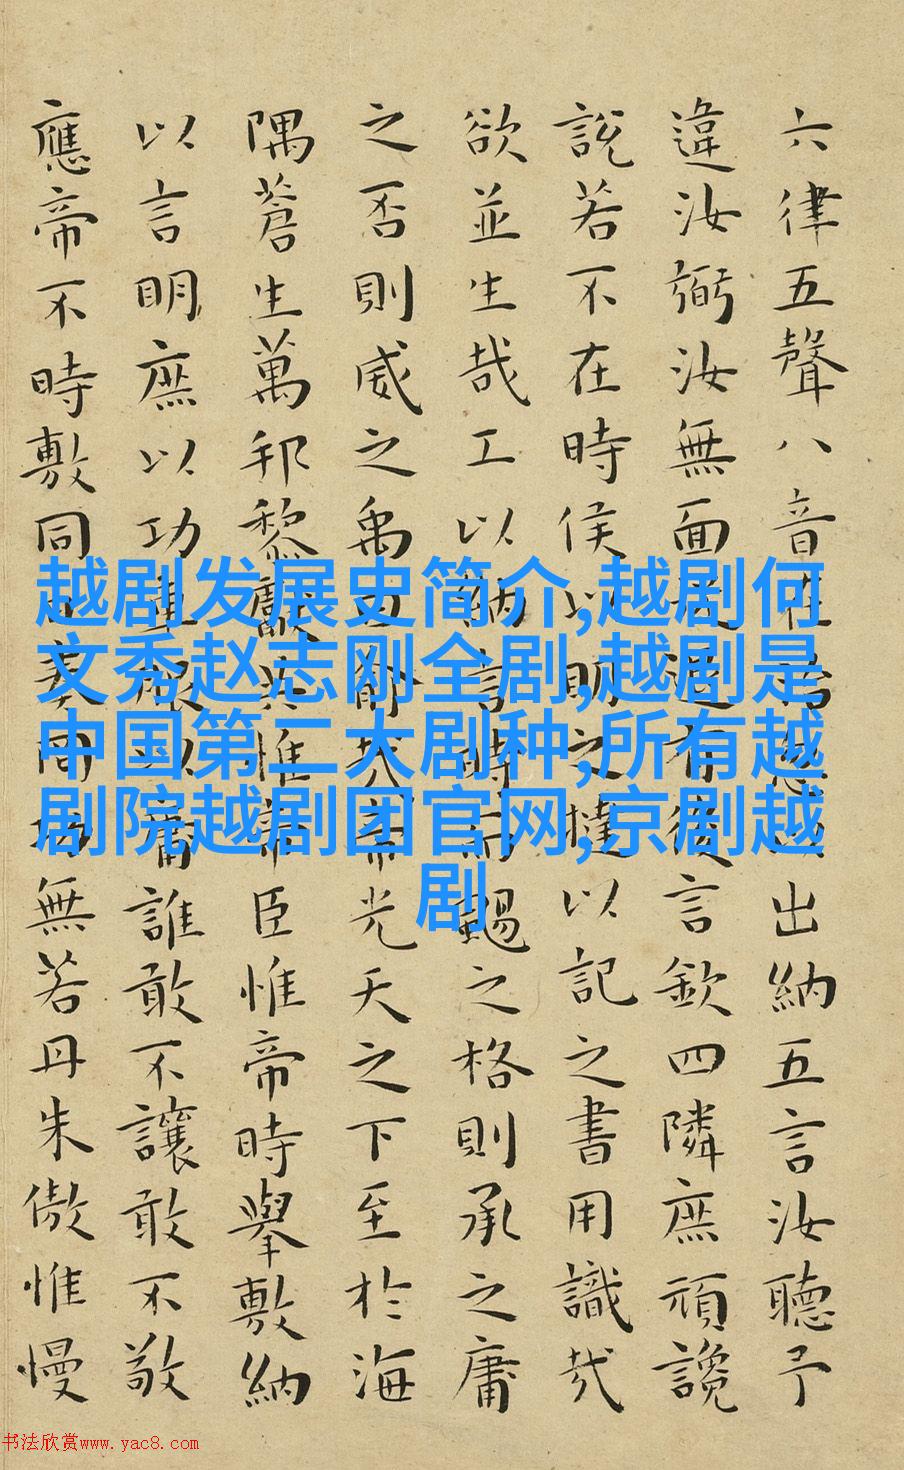 六律五聲八音在治忽以出納五言汝聽予
違汝弼汝無面從退有後言欽四隣庶頑讒
說若不在時侯以明之撻以記之書用識哉
欲並生哉工以納言時而颺之格則承之庸
之否則威之禹曰俞哉帝光天之下至於海
隅蒼生萬邦黎獻共惟帝臣惟帝時舉敷納
以言明庶以功車服以庸誰敢不讓敢不敬
應帝不時敷同日奏同功無若丹朱傲惟慢
越剧发展史简介,越剧何
文秀赵志刚全剧,越剧是
中国第二大剧种,所有越
剧院越剧团官网,京剧越
剧
书法欣赏www.yac8.com